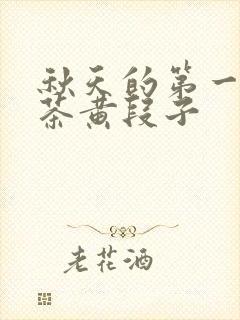 秋天的第一
茶黄段子
老花酒